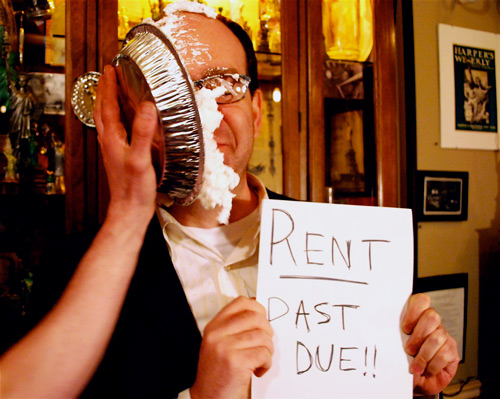 HARPER'S
WEEKLY
RENT
PAST
DUE!!